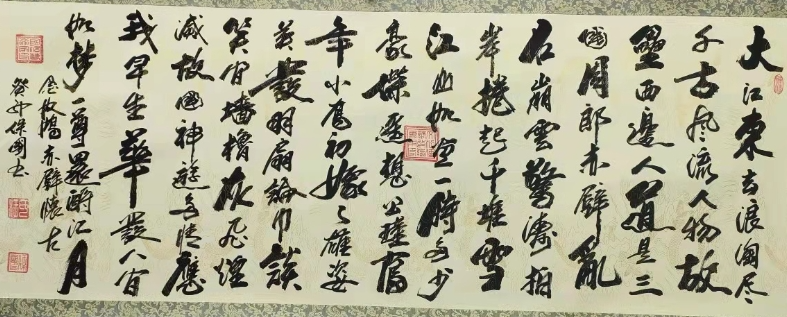 大江東去浪淘尽
千古風流人物故
壘西邊人道是三
國周郎赤壁亂
石崩雲驚濤拍
岸捲起千堆雪
江山如画一時多少
豪傑遥想公瑾當
年小喬初嫁了雄姿
英發羽扇綸巾談
笑间墙櫓灰飛煙
滅故國神遊多情應
我早生華發人间
如梦一尊還酹江月
念奴嬌赤壁懷古
癸卯保國书